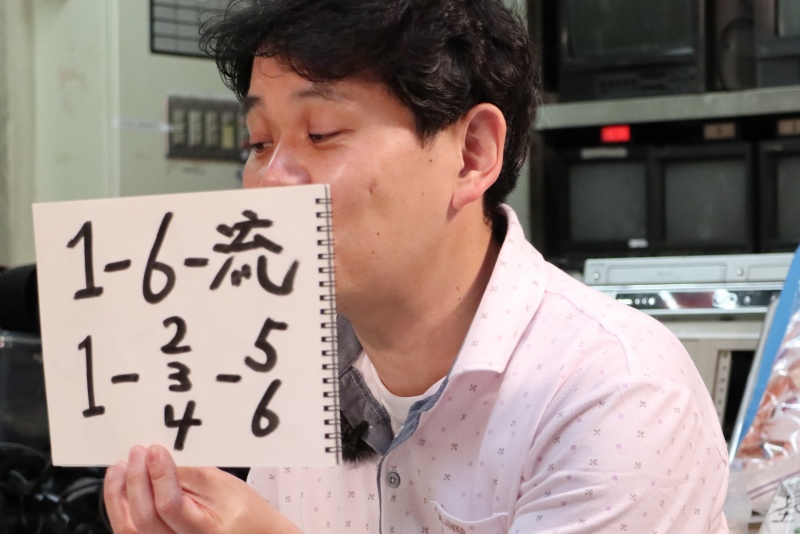 1-6-流
1-2 3 4-5 6